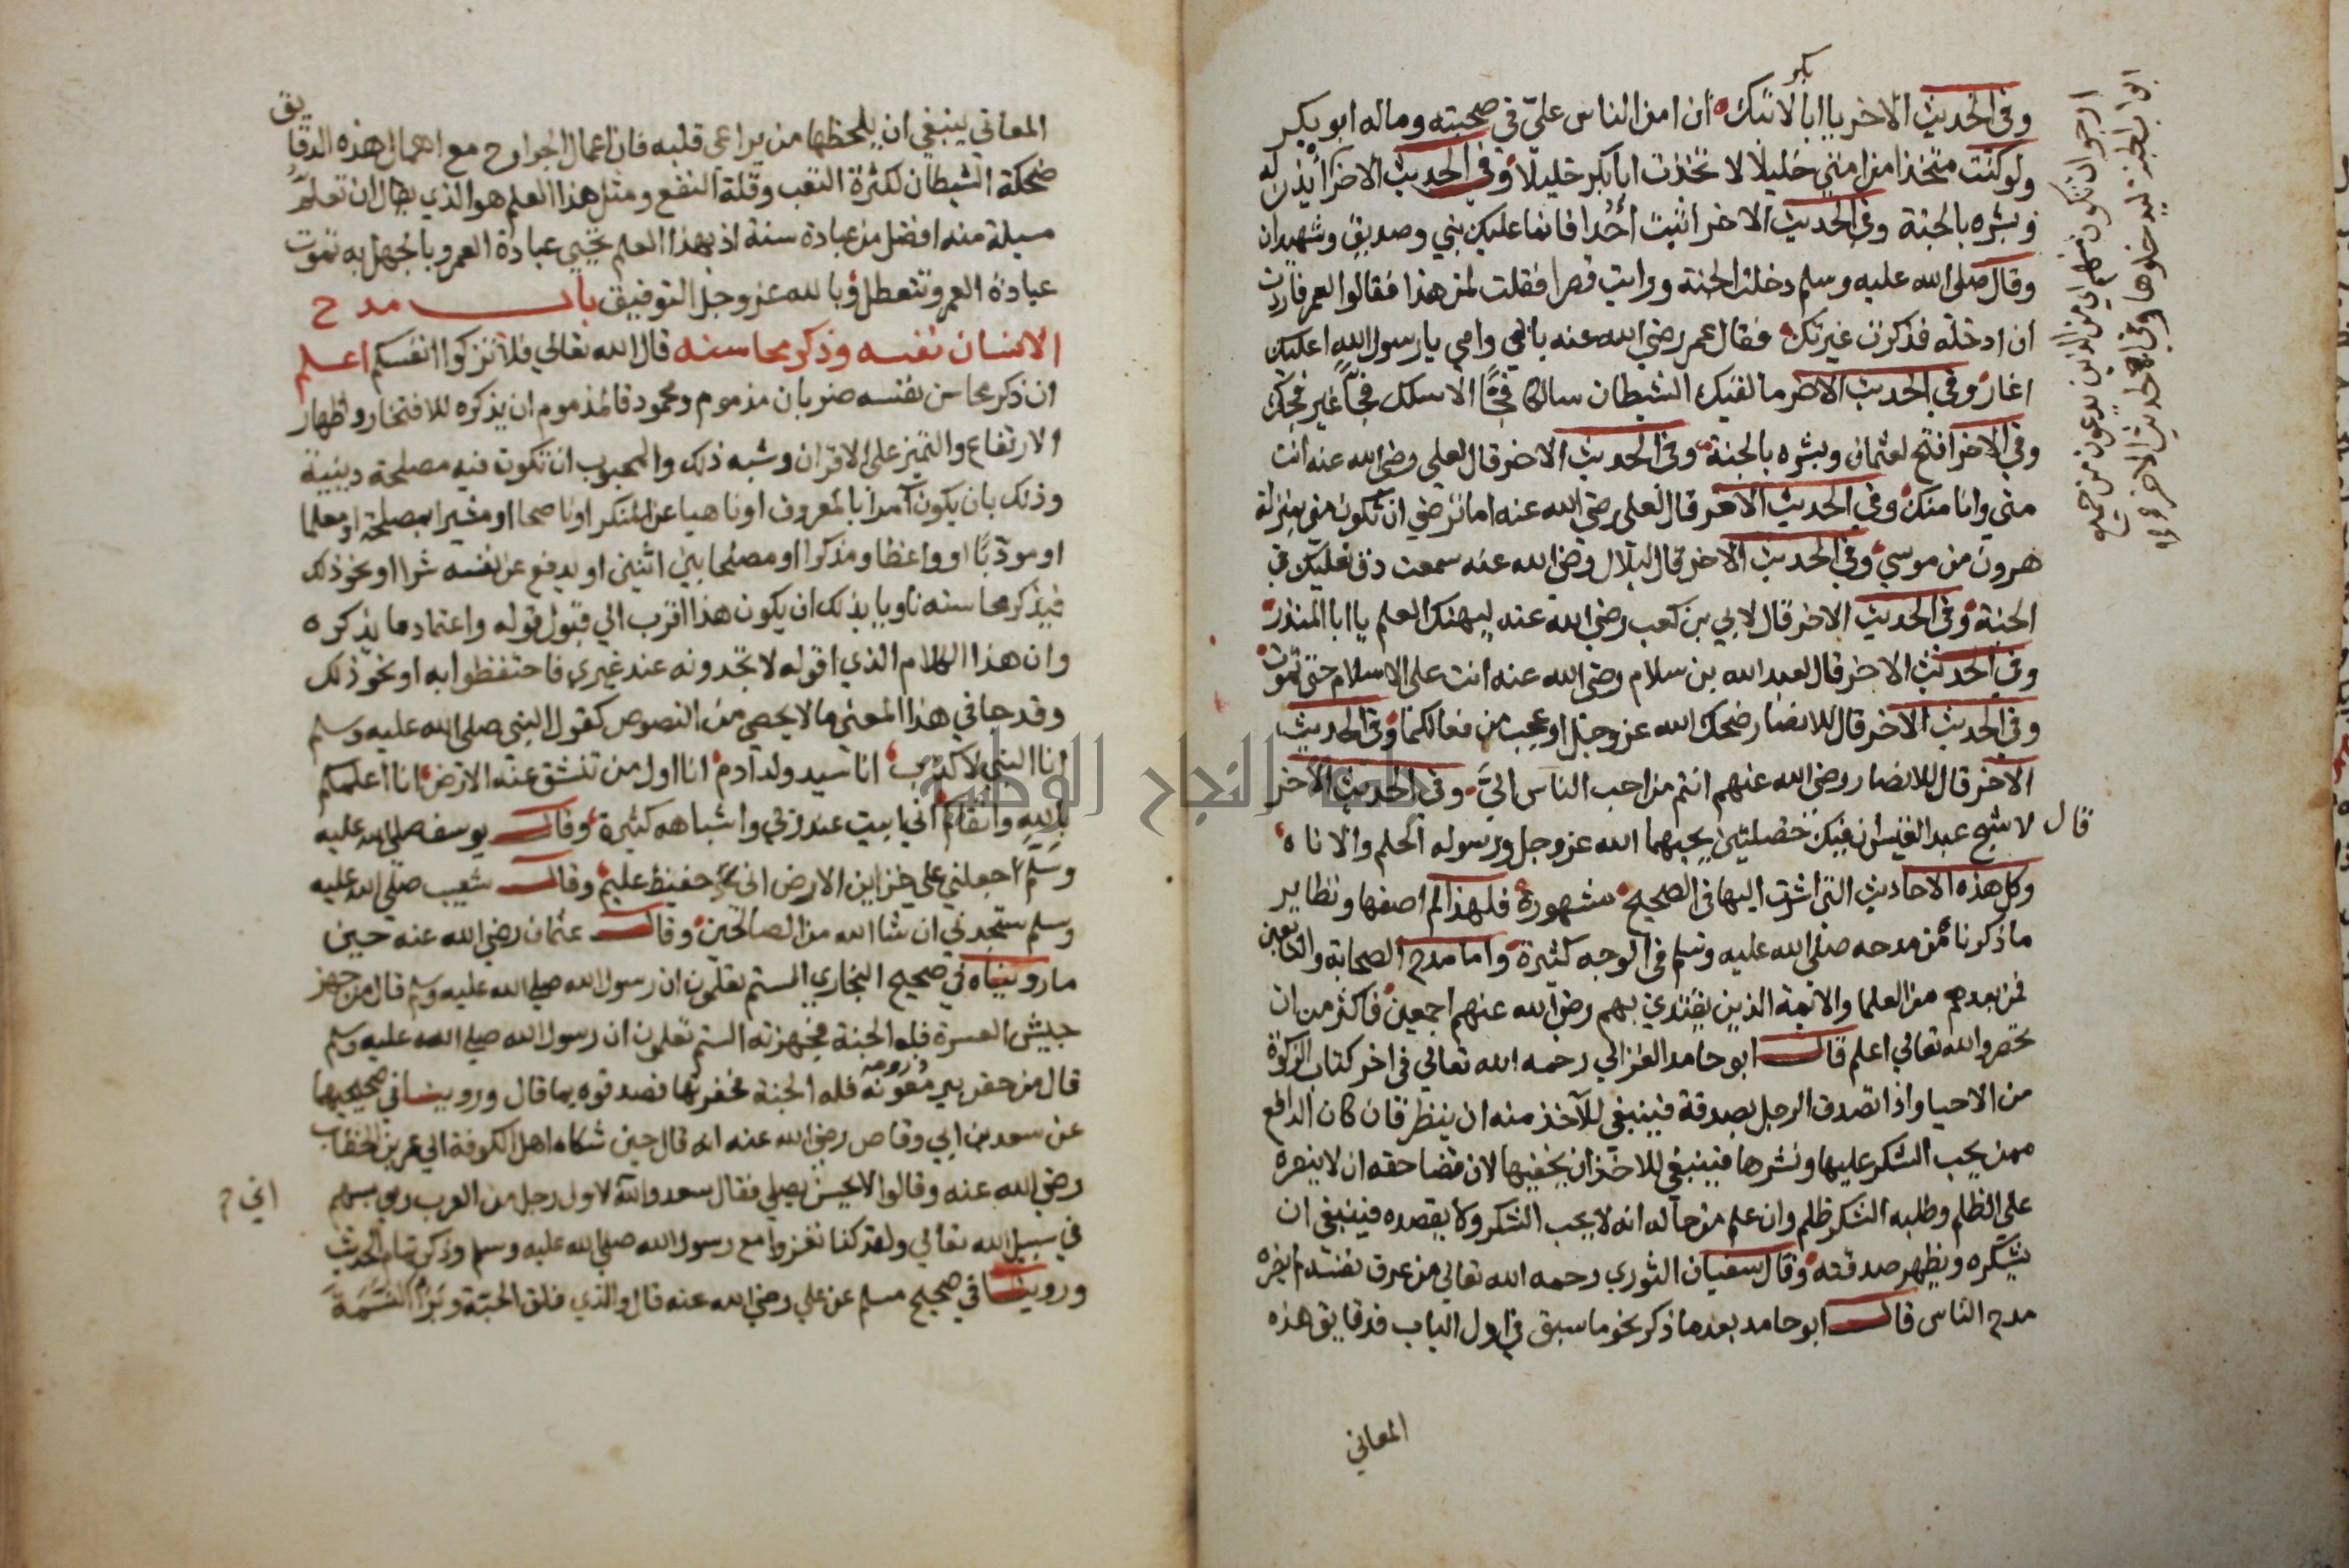 بكر
وفي الحديث الاخر يا ابا لا تبك ان امن الناس علي في صحبته وماله ابو بكر
ولو كنت متخذا من امتي خليلا لا تخذت ابا بكر خليلا وفي الحديث الاخر ائذن له
وبشره بالجنة وفي الحديث الاخر اثبت أحدا فانما عليك نبي وصديق وشهيدان
وقال صلى الله عليه وسلم دخلت الجنة ورايت قصرا فقلت لمن هذا فقالوا لعمر فاردت
ان ادخله فذكرت غيرتك فقال عمر رضي الله عنه بابي وامي يا رسول الله اعليك
اغار وفي الحديث الاخر ما لقيك الشيطان سالكا فجا الا سلك فجا غير فجك
وفي الاخر افتح لعثمان وبشره بالجنة وفي الحديث الاخر قال لعلي رضي الله عنه انت
مني وانا منك وفي الحديث الاخر قال لعلي رضي الله عنه اما ترضي ان تكون مني بمنزلة
هرون من موسي وفي الحديث الاخر قال لبلال رضي الله عنه سمعت دف نعليك في
الجنة وفي الحديث الاخر قال لابي بن كعب رضي الله عنه ليهنك العلم يا ابا المنذر
وفي الحديث الاخر قال لعبد الله بن سلام رضي الله عنه انت على الاسلام حتى تموت
وفي الحديث الاخر قال للانصار ضحك الله عز وجل او عجب من فعالكما وفي الحديث
الاخر قال للانصار رضي الله عنهم انتم من احب الناس الي وفي الحديث الاخر
قال لاشج عبد القيس ان فيك خصلتين يحبهما الله عز وجل ورسوله الحلم والاناه
وكل هذه الاحاديث التي اشرت اليها في الصحيح مشهورة فلهذا لم اصفها ونظاير
ما ذكرناه من مدحه صلى الله عليه وسلم في الوجه كثيرة واما مدح الصحابة والتابعين
فمن بعدهم من العلما والائمة الذين يقتدي بهم رضي الله عنهم اجمعين فاكثر من ان
تحصر والله تعالي اعلم قال ابو حامد الغزالي رحمه الله تعالي في اخر كتاب الزكوة
من الاحيا واذا تصدق الرجل بصدقة فينبغي للآخذ منه ان ينظر فان كان الدافع
ممن يحب الشكر عليها ونشرها فينبغي للاخذ ان يخفيها لان قضا حقه ان لا ينصره
على الظلم وطلبه الشكر ظلم وان علم من حاله انه لا يحب الشكر ولا يقصده فينبغي ان
يشكره ويظهر صدقته وقال سفيان الثوري رحمه الله تعالى من عرف نفسه لم يضره
مدح الناس قال ابو حامد بعد ما ذكر نحو ما سبق في اول الباب فدقايق هذه
المعاني
ارجوا ان تكون منهم اي من الذين يدعون من جميع
ابواب الجنة ليدخلوها وفي الحديث الاخر
المعاني ينبغي ان يلحظها من يراعى قلبه فان اعمال الجوارح مع اهمال هذه الدقايق
ضحكة الشيطان لكثرة التعب وقلة النفع ومثل هذا العلم هو الذي يقال ان تعلم
مسيلة منه افضل من عبادة سنة اذ بهذا العلم تحيى عبادة العمر وبالجهل به تموت
عبادة العمر وتتعطل وبالله عز وجل التوفيق باب مدح
الانسان نفسه وذكر محاسنه قال الله تعالي فلا تزكوا انفسكم اعلم
ان ذكر محاسن نفسه ضربان مذموم ومحمود فالمذموم ان يذكره للافتخار واظهار
الارتفاع والتميز على الاقران وشبه ذلك والمحبوب ان تكون فيه مصلحة دينية
وذلك بان يكون آمرا بالمعروف او ناهيا عن المنكر او ناصحا او مشيرا بمصلحة او معلما
او مودبا او واعظا ومذكرا او مصلحا بين اثنين او يدفع عن نفسه شرا او نحو ذلك
فيذكر محاسنه ناويا بذلك ان يكون هذا اقرب الي قبول قوله واعتماد ما يذكره
وان هذا الكلام الذي اقوله لا تجدونه عند غيري فاحتفظوا به او نحو ذلك
وقد جا في هذا المعنى ما لا يحصى من النصوص كقول النبي صلى الله عليه وسلم
انا النبي لا كذب انا سيد ولد آدم انا اول من تنشق عنه الارض انا اعلمكم
بالله واتقاكم اني ابيت عند ربي واشباهه كثيرة وقال يوسف صلى الله عليه
وسلم اجعلني على خزاين الارض اني حفيظ عليم وقال شعيب صلى الله عليه
وسلم ستجدني ان شا الله من الصالحين وقال عثمان رضي الله عنه حين
ما رويناه في صحيح البخاري الستم تعلمون ان رسول الله صلي الله عليه وسلم قال من جهز
جيش العسرة فله الجنة فجهزته الستم تعلمون ان رسول الله صلى الله عليه وسلم
رومه
قال من حفر بير معونه فله الجنة فحفرتها فصدقوه بما قال وروينا في صحيحيهما
عن سعد بن ابي وقاص رضي الله عنه انه قال حين شكاه اهل الكوفة الي عمر بن الخطاب
رضي الله عنه وقالوا لا يحسن يصلي فقال سعد والله لاول رجل من العرب رمي بسهم
اني
في سبيل الله تعالي ولقد كنا نغزوا مع رسول الله صلى الله عليه وسلم وذكر تمام الحديث
وروينا في صحيح مسلم عن علي رضي الله عنه قال والذي فلق الحبة وبرأ النسمة
النجاح الوطنية